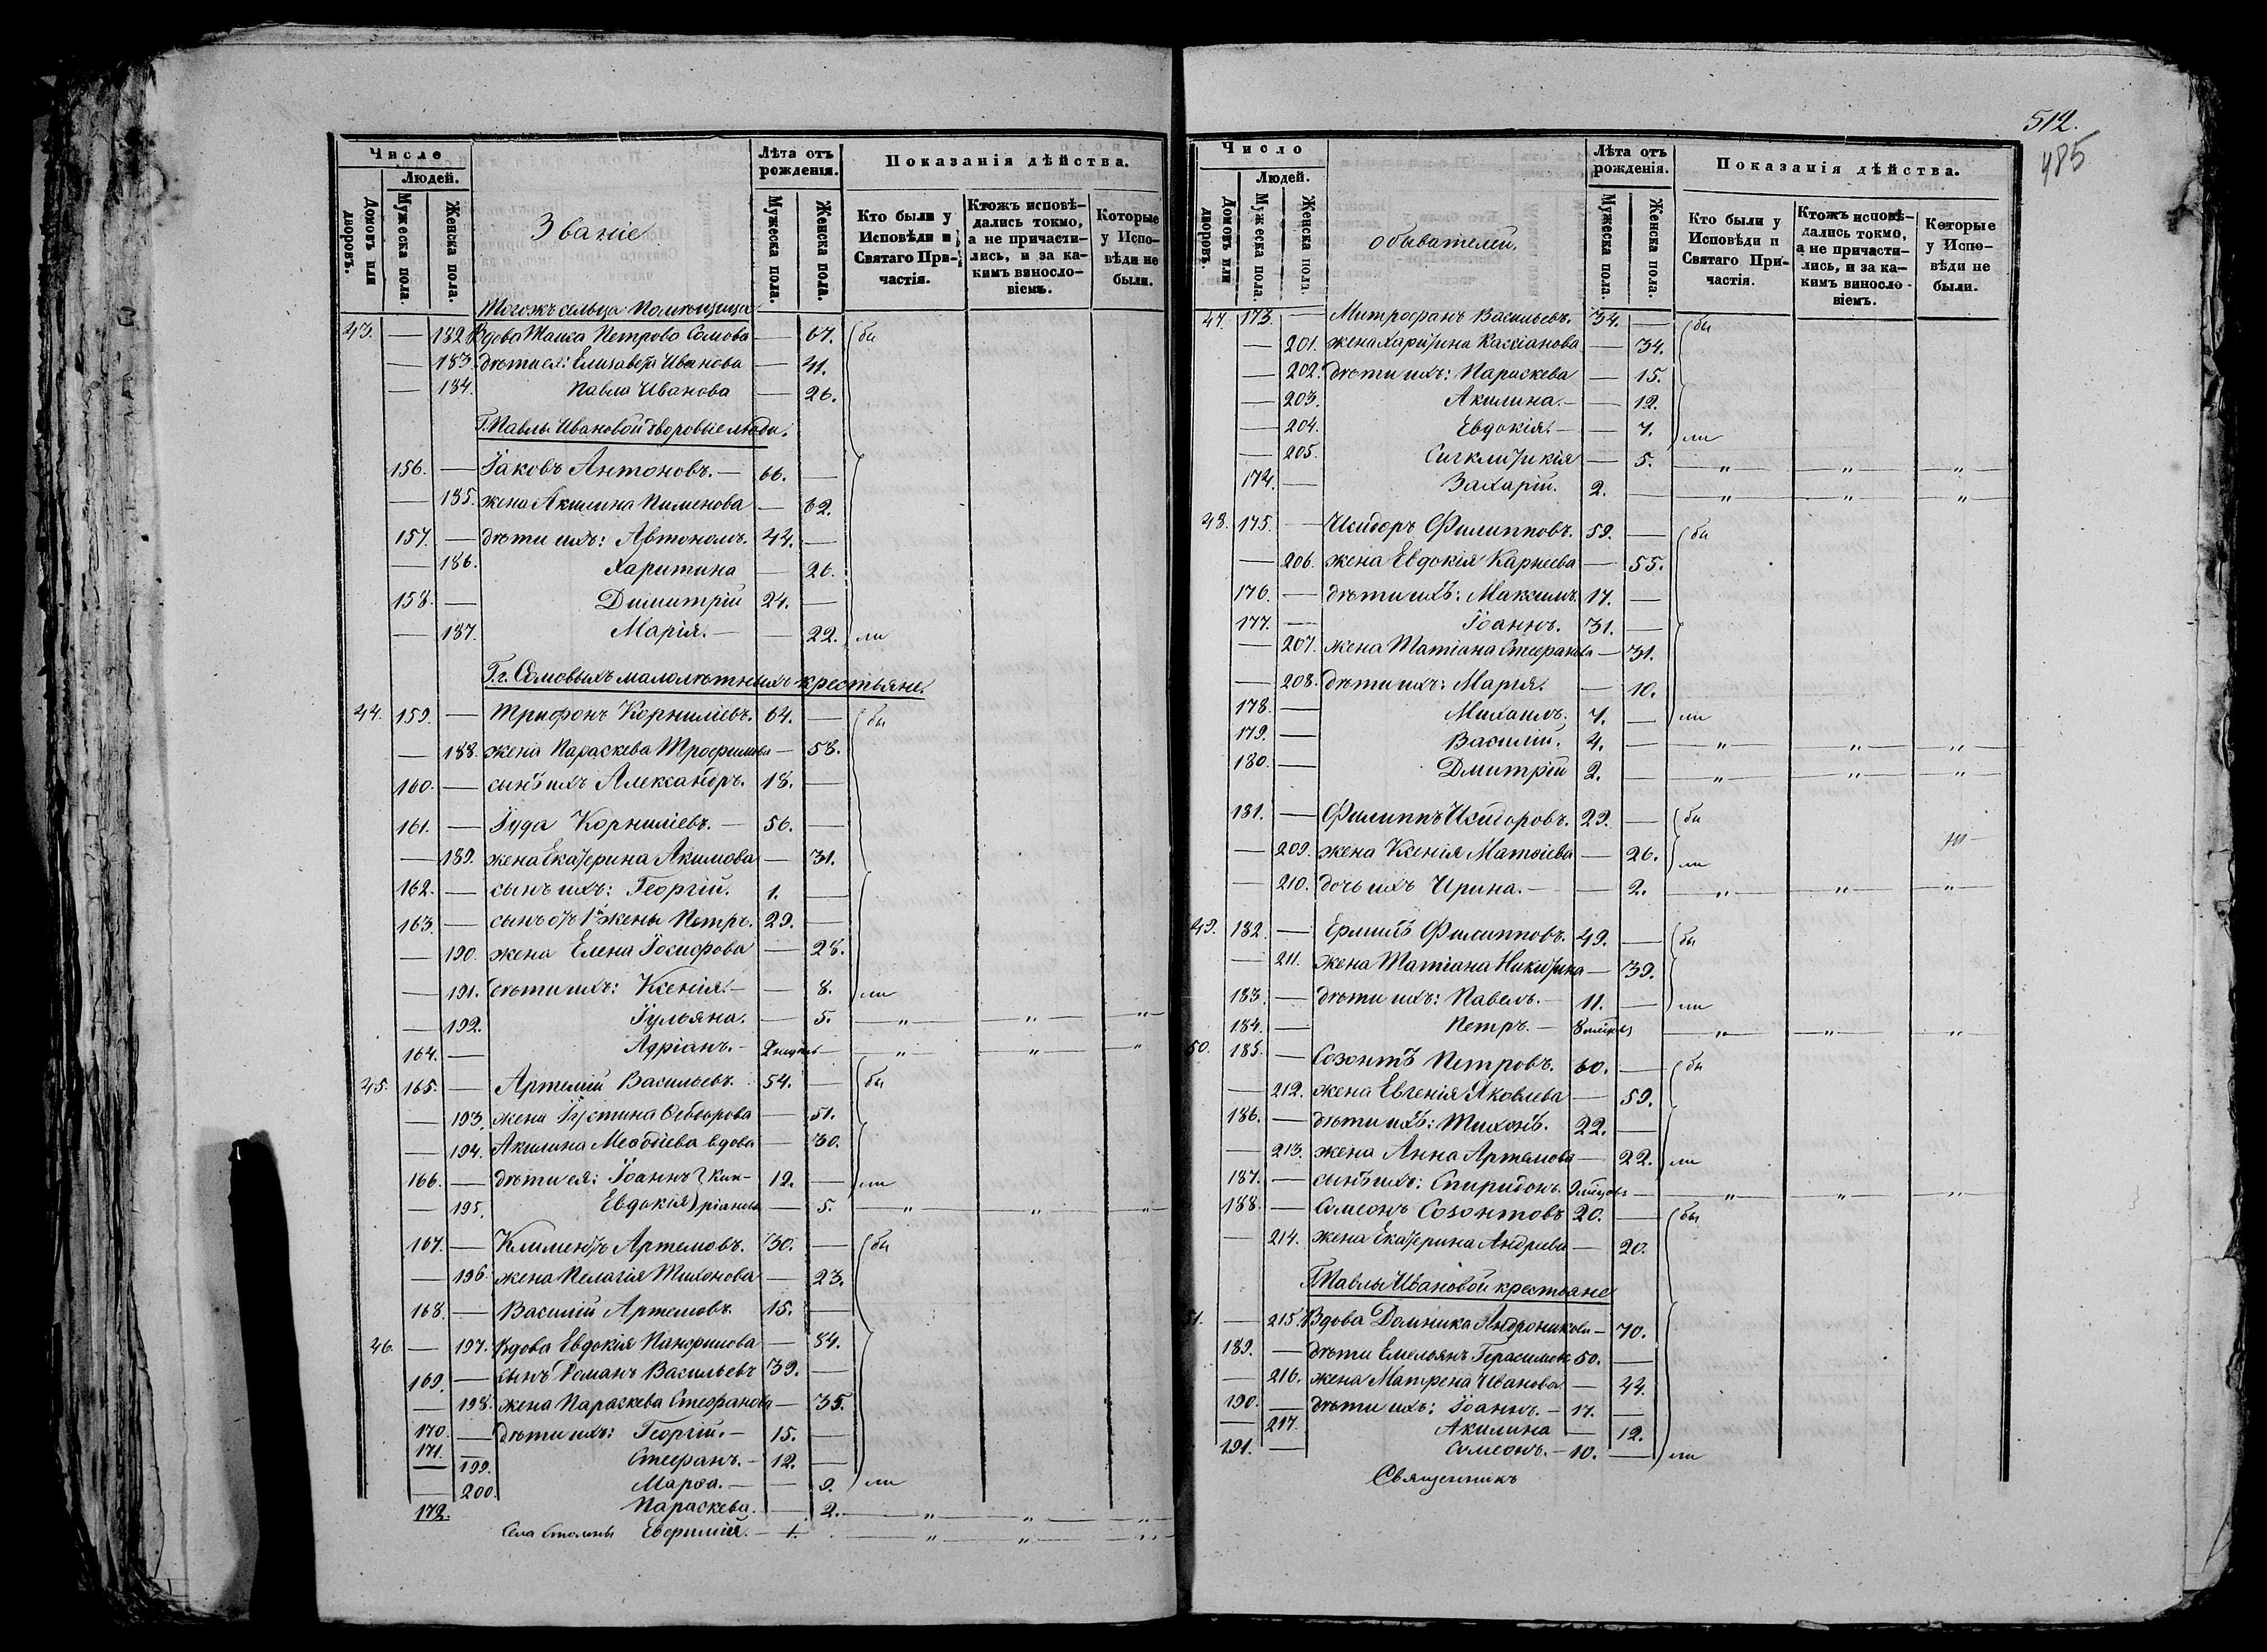 Число
Людей.
Домовъ или дворовъ.
Мужеска пола.
Женска пола.
Званіе
Лѣта отъ рожденія.
Мужеска пола.
Женска пола.
Показанія дѣйства.
Кто были у Исповѣди и Святаго При-частія.
Ктожъ исповѣ-дались токмо, а не причасти-лись, и за ка-кимъ винословіемъ.
Которые у Испо-вѣди не были.
Тогожъ сельца Помѣщица
43. — 182 Вдова Таиса Петрова Сомова — 67. бы
— 183. дѣти ея: Елисавета Иванова — 41.
— 184. Павла Иванова — 26.
Г. Павлы Ивановой дворовые люди.
156. — Іаковъ Антоновъ. — 66. —
— 185. жена Акилина Пименова — 62.
157. — дѣти ихъ: Автономъ. 44. —
— 186. Харитина — 26.
158. — Димитрій 24. —
— 187. Марія. — — 22. ли
Г.г. Сомовыхъ малолѣтныхъ крестьяне.
44. 159. — Трифонъ Корниліевъ. 64. — бы
— 188. жена Параскева Трофимова — 58.
160. — сынъ ихъ Александръ. 18. —
161. — Іуда Корниліевъ. — 56. —
— 189. жена Екатерина Акимова — 31.
162. — сынъ ихъ: Георгій. 1. —
163. — сынъ отъ 1й жены Петръ. 29. —
— 190. жена Елена Іосифова — 28.
— 191. дѣти ихъ: Ксенія. — — 8. ли
— 192. Іульяна. — 5. — „ — „ — „
164. — Адріанъ. — 2 недѣль — „ — „ — „
45. 165. — Артемій Васильевъ. 54. — бы
— 193. жена Іустина Ѳедорова — 51.
— 194. Акилина Меѳодіева вдова — 30.
166. — дѣти ея: Іоаннъ Кип- 12. — ли
— 195. Евдокія ріановы — 5. — „ — „ — „
167. — Климентъ Артемовъ. 30. — бы
— 196. жена Пелагія Тихонова — 23.
168. — Василій Артемовъ. 15. —
46. — 197. Вдова Евдокія Панфилова — 84.
169. — сынъ Романъ Васильевъ 39. —
— 198. жена Параскева Стефанова — 35.
170. — дѣти ихъ: Георгій. — 15. —
171. — Стефанъ. — 12. —
— 199. Марѳа. — — 9. ли
— 200. Параскева. — 2. — „ — „ — „
172. Евфимій. — 1. „ — „ — „
Села
512.
485
Число
Людей.
Домовъ или дворовъ.
Мужеска пола.
Женска пола.
обывателей.
Лѣта отъ рожденія.
Мужеска пола.
Женска пола.
Показанія дѣйства.
Кто были у Исповѣди и Святаго При-частія.
Ктожъ исповѣ-дались токмо, а не причасти-лись, и за ка-кимъ винословіемъ.
Которые у Испо-вѣди не были.
47. 173. — Митрофанъ Васильевъ. 34. — бы
— 201. жена Харитина Кассіанова — 34.
— 202. дѣти ихъ: Параскева — 15.
— 203. Акилина. — — 12.
— 204. Евдокія. — — 7. ли
— 205. Сигклитикія — 5. — „ — „ — „
174. — Захарій. 2. — „ — „ — „
48. 175. — Исидоръ Филипповъ. 59. — бы
— 206. жена Евдокія Карнеева — 55.
176. — дѣти ихъ: Максимъ. 17. —
177. — Іоаннъ. 31. —
— 207. жена Татіана Стефанова — 31.
— 208. дѣти ихъ: Марія. — 10.
178. — Михаилъ. 7. — ли
179. — Василій. 4. — „ — „ — „
180. — Дмитрій 2. — „ — „ — „
181. — Филиппъ Исидоровъ. 29. — бы
— 209. жена Ксенія Матѳіева — 26. ли
— 210. дочь ихъ Ирина. — — 2. „ — „ — „
49. 182. — Ермилъ Филипповъ. 49. — бы
— 211. жена Татіана Никитина — 39.
183. — дѣти ихъ: Павелъ. — 11. — ли
184. — Петръ. — 8 мѣсяц „ — „ — „
50. 185. — Созонтъ Петровъ. 60. — бы
— 212. жена Евгенія Яковлева — 59.
186. — дѣти ихъ: Тихонъ. 22. —
— 213. жена Анна Артемова — 22. ли
187. — сынъ ихъ: Спиридонъ. 9 мѣсяцовъ — „ — „ — „
188. — Симеонъ Созонтовъ 20. — бы
— 214. жена Екатерина Андреева — 20.
Г. Павлы Ивановой крестьяне
51. — 215. Вдова Домника Андроникова — 70.
189. — дѣти Емельянъ Герасимовъ 50. —
— 216. жена Матрена Иванова — 44.
190. — дѣти ихъ: Іоаннъ. — 17. —
— 217. Акилина — 12.
191. — Симеонъ. — 10. — ли
Священникъ